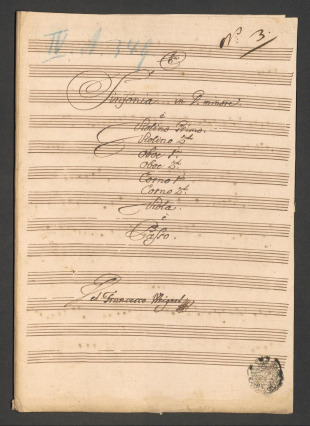 IV A 349
Nº 3.
Sinfonia in D. minore
à
Violino Primo.
Violino 2do
Oboe 1mo
Oboe 2do
Corno 1mo
Corno 2do
Viola.
è
Basso.
Del Francesco